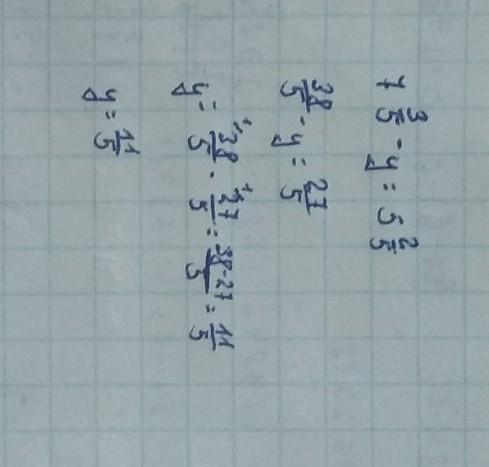 7 3/5 - y = 5 2/5
38/5 - y = 27/5
y = 38/5 - 27/5 = 38-27/5 = 11/5
y = 11/5